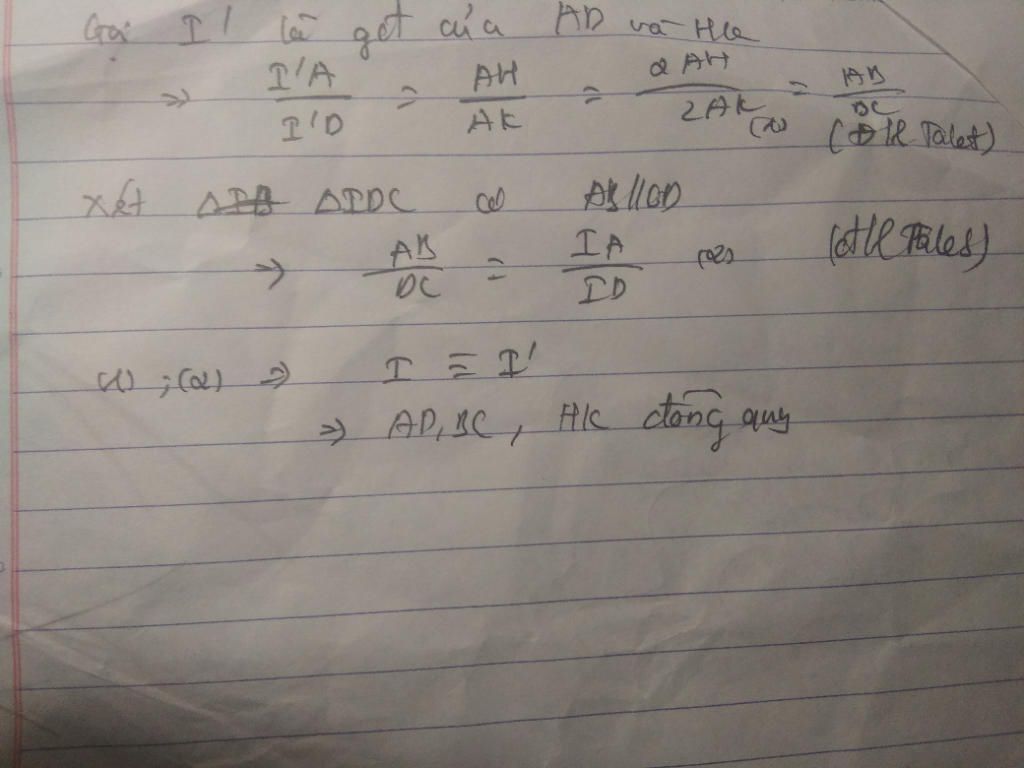 Gọi I' là gđ của AD và HK
=> I'A/I'D = AH/AK = 2AH/2AK = AB/DC (1)
(ĐHL Talet)
Xét ΔIDC có AB//CD
=> AB/DC = IA/ID (2) (đHL Tales)
(1) ; (2) => I ≡ I'
=> AD, BC, HK đồng quy